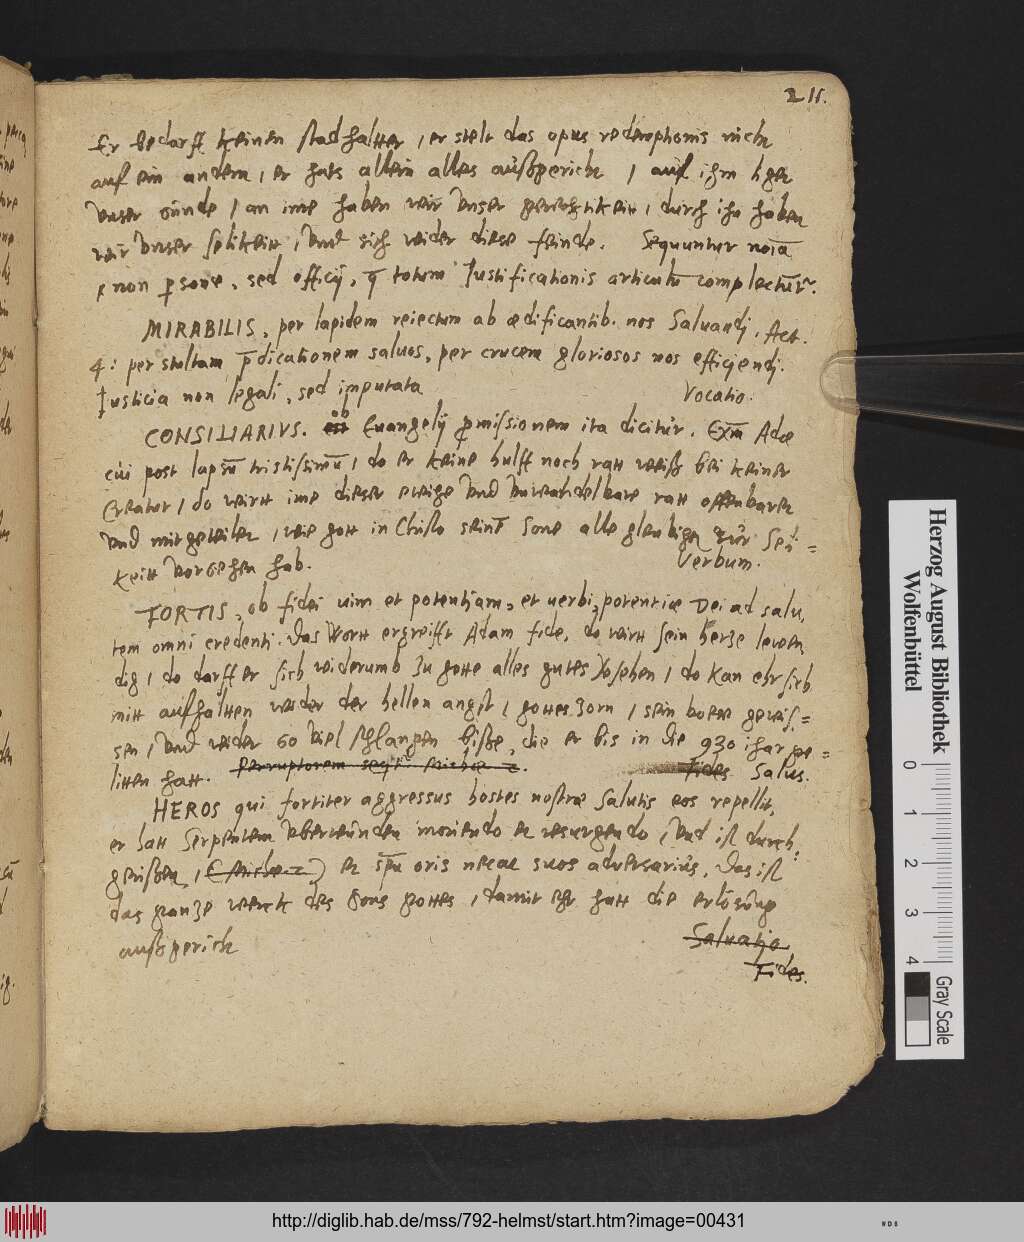 211.
Er bedarff keinen stadhaltter, er stelt das opus redemptionis nicht
auf ein andern, er hats allein alles außgericht, auf ihm ligen
unser sünde, an ime haben wir unser gerechtikeitt, durch ihn haben
wir unser selikeitt, und sich wider diese feinde. Sequuntur noīa
non ꝑsone, sed officij, q̄ totum Iustificationis articulū complectūr.
MIRABILIS, per lapidem reiectum ab ædificantib. nos Saluandj. Act.
4: per stultam p̄dicationem saluos, per crucem gloriosos nos efficiendj.
Iusticia non legali, sed imputata
Vocatio.
CONSILIARIVS. ob Euangelij ꝓmissionem ita dicitur. Exm̄ Adæ
cui post lapsū tristissimū, do er keine hulff noch ratt weiß bei keiner
Creatur, do wirtt ime dieser ewige und unwandelbare ratt offenbarett
und mitgeteilet, wie gott in Christo seinē Sone alle gleubigen zur Seli=
keitt vorsehen hab.
Verbum.
FORTIS, ob fidei uim et potentiam, et uerbi, potentiæ Dei ad salu,
tem omni credenti. Das Wortt ergreifft Adam fide, do wirtt sein herze leben,
dig, do darff er sich widerumb zu gotte alles gutes vorsehen, do kan ehr sich
mitt auffhaltten wider der hellen angst, gottes zorn, sein boese gewis=
sen, und wider so viel schlangen biße, die er bis in die 930 ihar ge=
litten hatt. Perruptorem
Fides Salus.
HEROS qui fortiter aggressus hostes nostræ salutis eos repellit,
er hatt Serpentem uberwunden moriendo et resurgendo, und ist durch,
gerißen, (Micheæ 2) et spū oris necat suos aduersarius. Das ist
das ganze werck des Sons gottes, damit ehr hatt die erlösung
außgericht
Saluatio
Fides.
Herzog August Bibliothek
Wolfenbüttel
0 1 2 3 4
Gray Scale
http://diglib.hab.de/mss/792-helmst/start.htm?image=00431